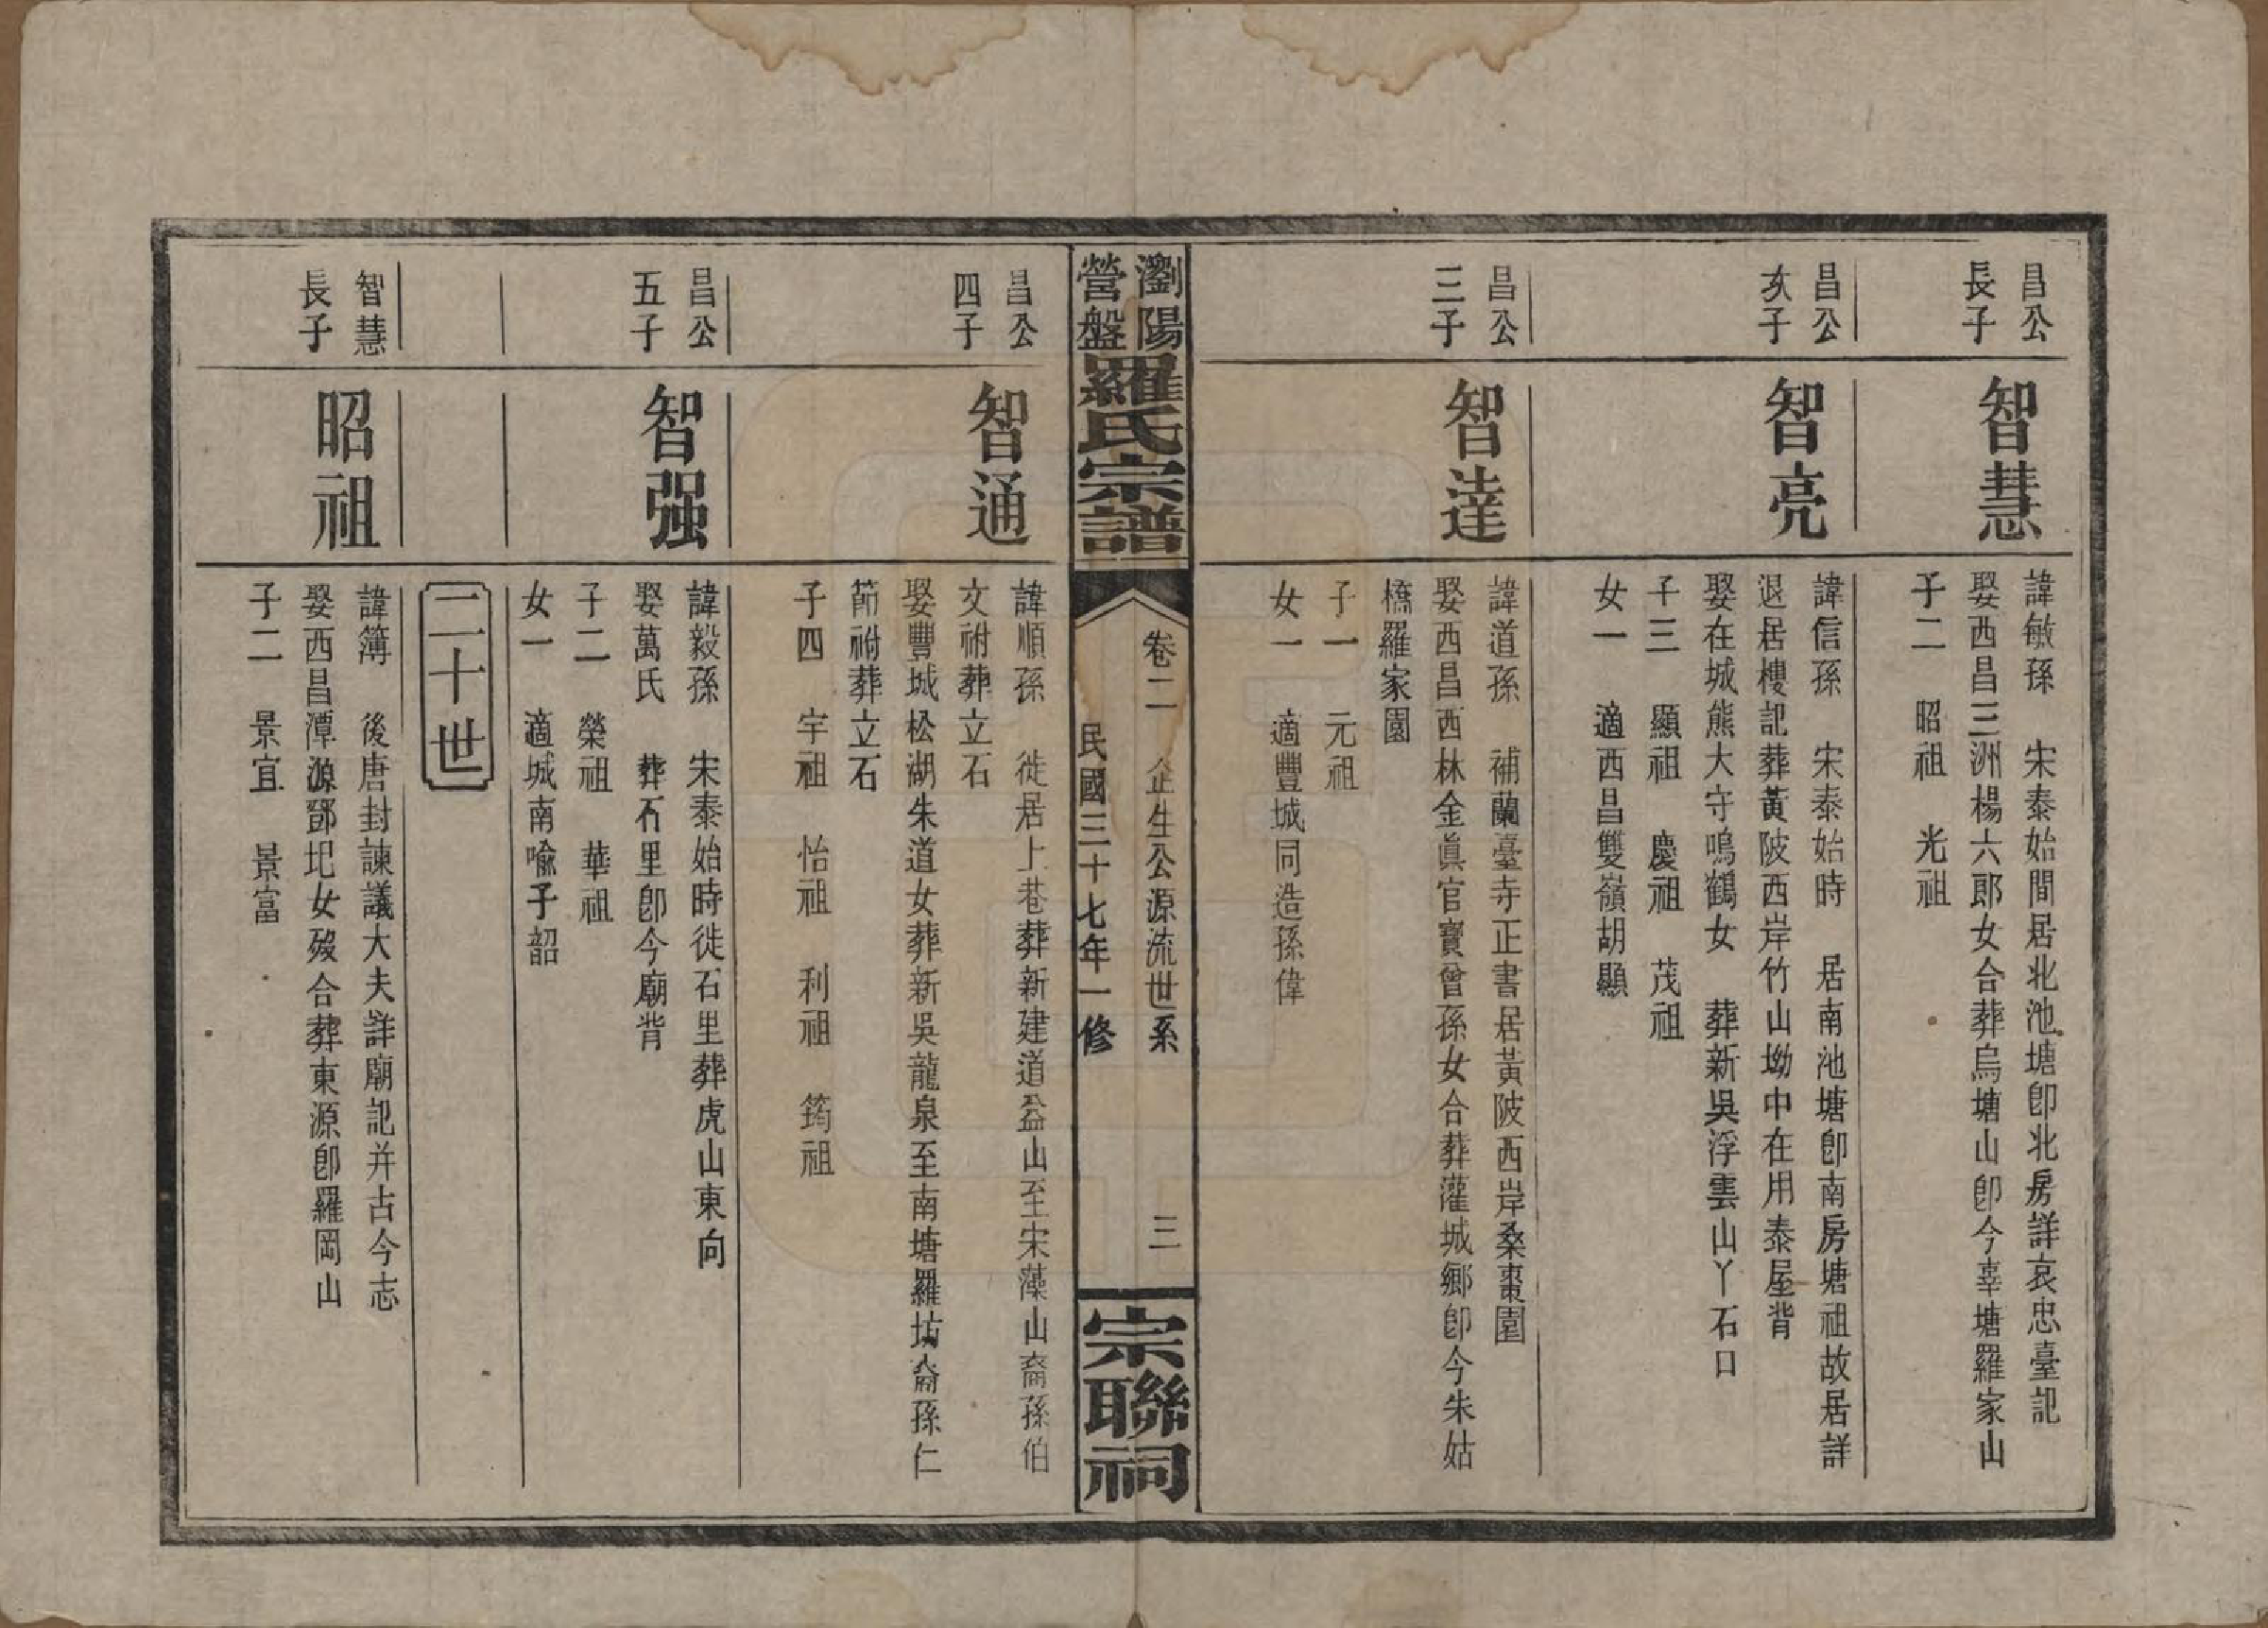 昌公
長子
智慧
諱敏孫　宋泰始間居北池塘卽北房詳哀忠臺記
娶西昌三洲楊六郎女合葬烏塘山卽今辜塘羅家山
子二　昭祖　光祖
昌公
次子
智亮
諱信孫　宋泰始時　居南池塘卽南房塘祖故居詳
退居樓記葬黃陂西岸竹山坳中在用泰屋背
娶在城熊大守鳴鶴女　葬新吳浮雲山丫石口
子三　顯祖　慶祖　茂祖
女一　適西昌雙嶺胡顯
昌公
三子
智達
諱道孫　補蘭臺寺正書居黃陂西岸桑棗園
娶西昌西林金眞官寳曾孫女合葬灌城鄉卽今朱姑
橋羅家園
子一　元祖
女一　適豐城同造孫偉
瀏陽
營盤
羅氏宗譜
卷二　企生公源流世系　三
民國三十七年一修
宗聯祠
昌公
四子
智通
諱順孫　徙居上巷葬新建道益山至宋藻山裔孫伯
文祔葬立石
娶豐城松湖朱道女葬新吳龍泉至南塘羅坊裔孫仁
節祔葬立石
子四　宇祖　怡祖　利祖　筠祖
昌公
五子
智强
諱毅孫　宋泰始時徙石里葬虎山東向
娶萬氏　葬石里卽今廟背
子二　榮祖　華祖
女一　適城南喻子韶
二十世
智慧
長子
昭祖
諱簿　後唐封諫議大夫詳廟記并古今志
娶西昌潭源鄧圯女歿合葬東源卽羅岡山
子二　景宜　景富